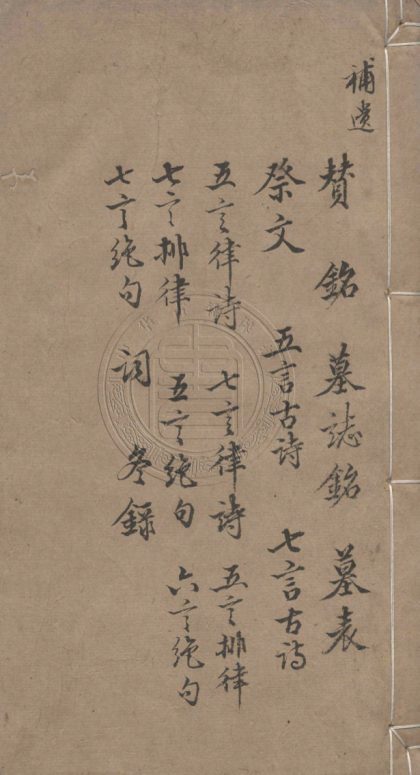 補遺
賛 銘 墓誌銘 墓表
祭文 五言古詩 七言古詩
五言律詩 七言律詩 五言排律
七言排律 五言絶句 六言絶句
七言絶句 詞 錄